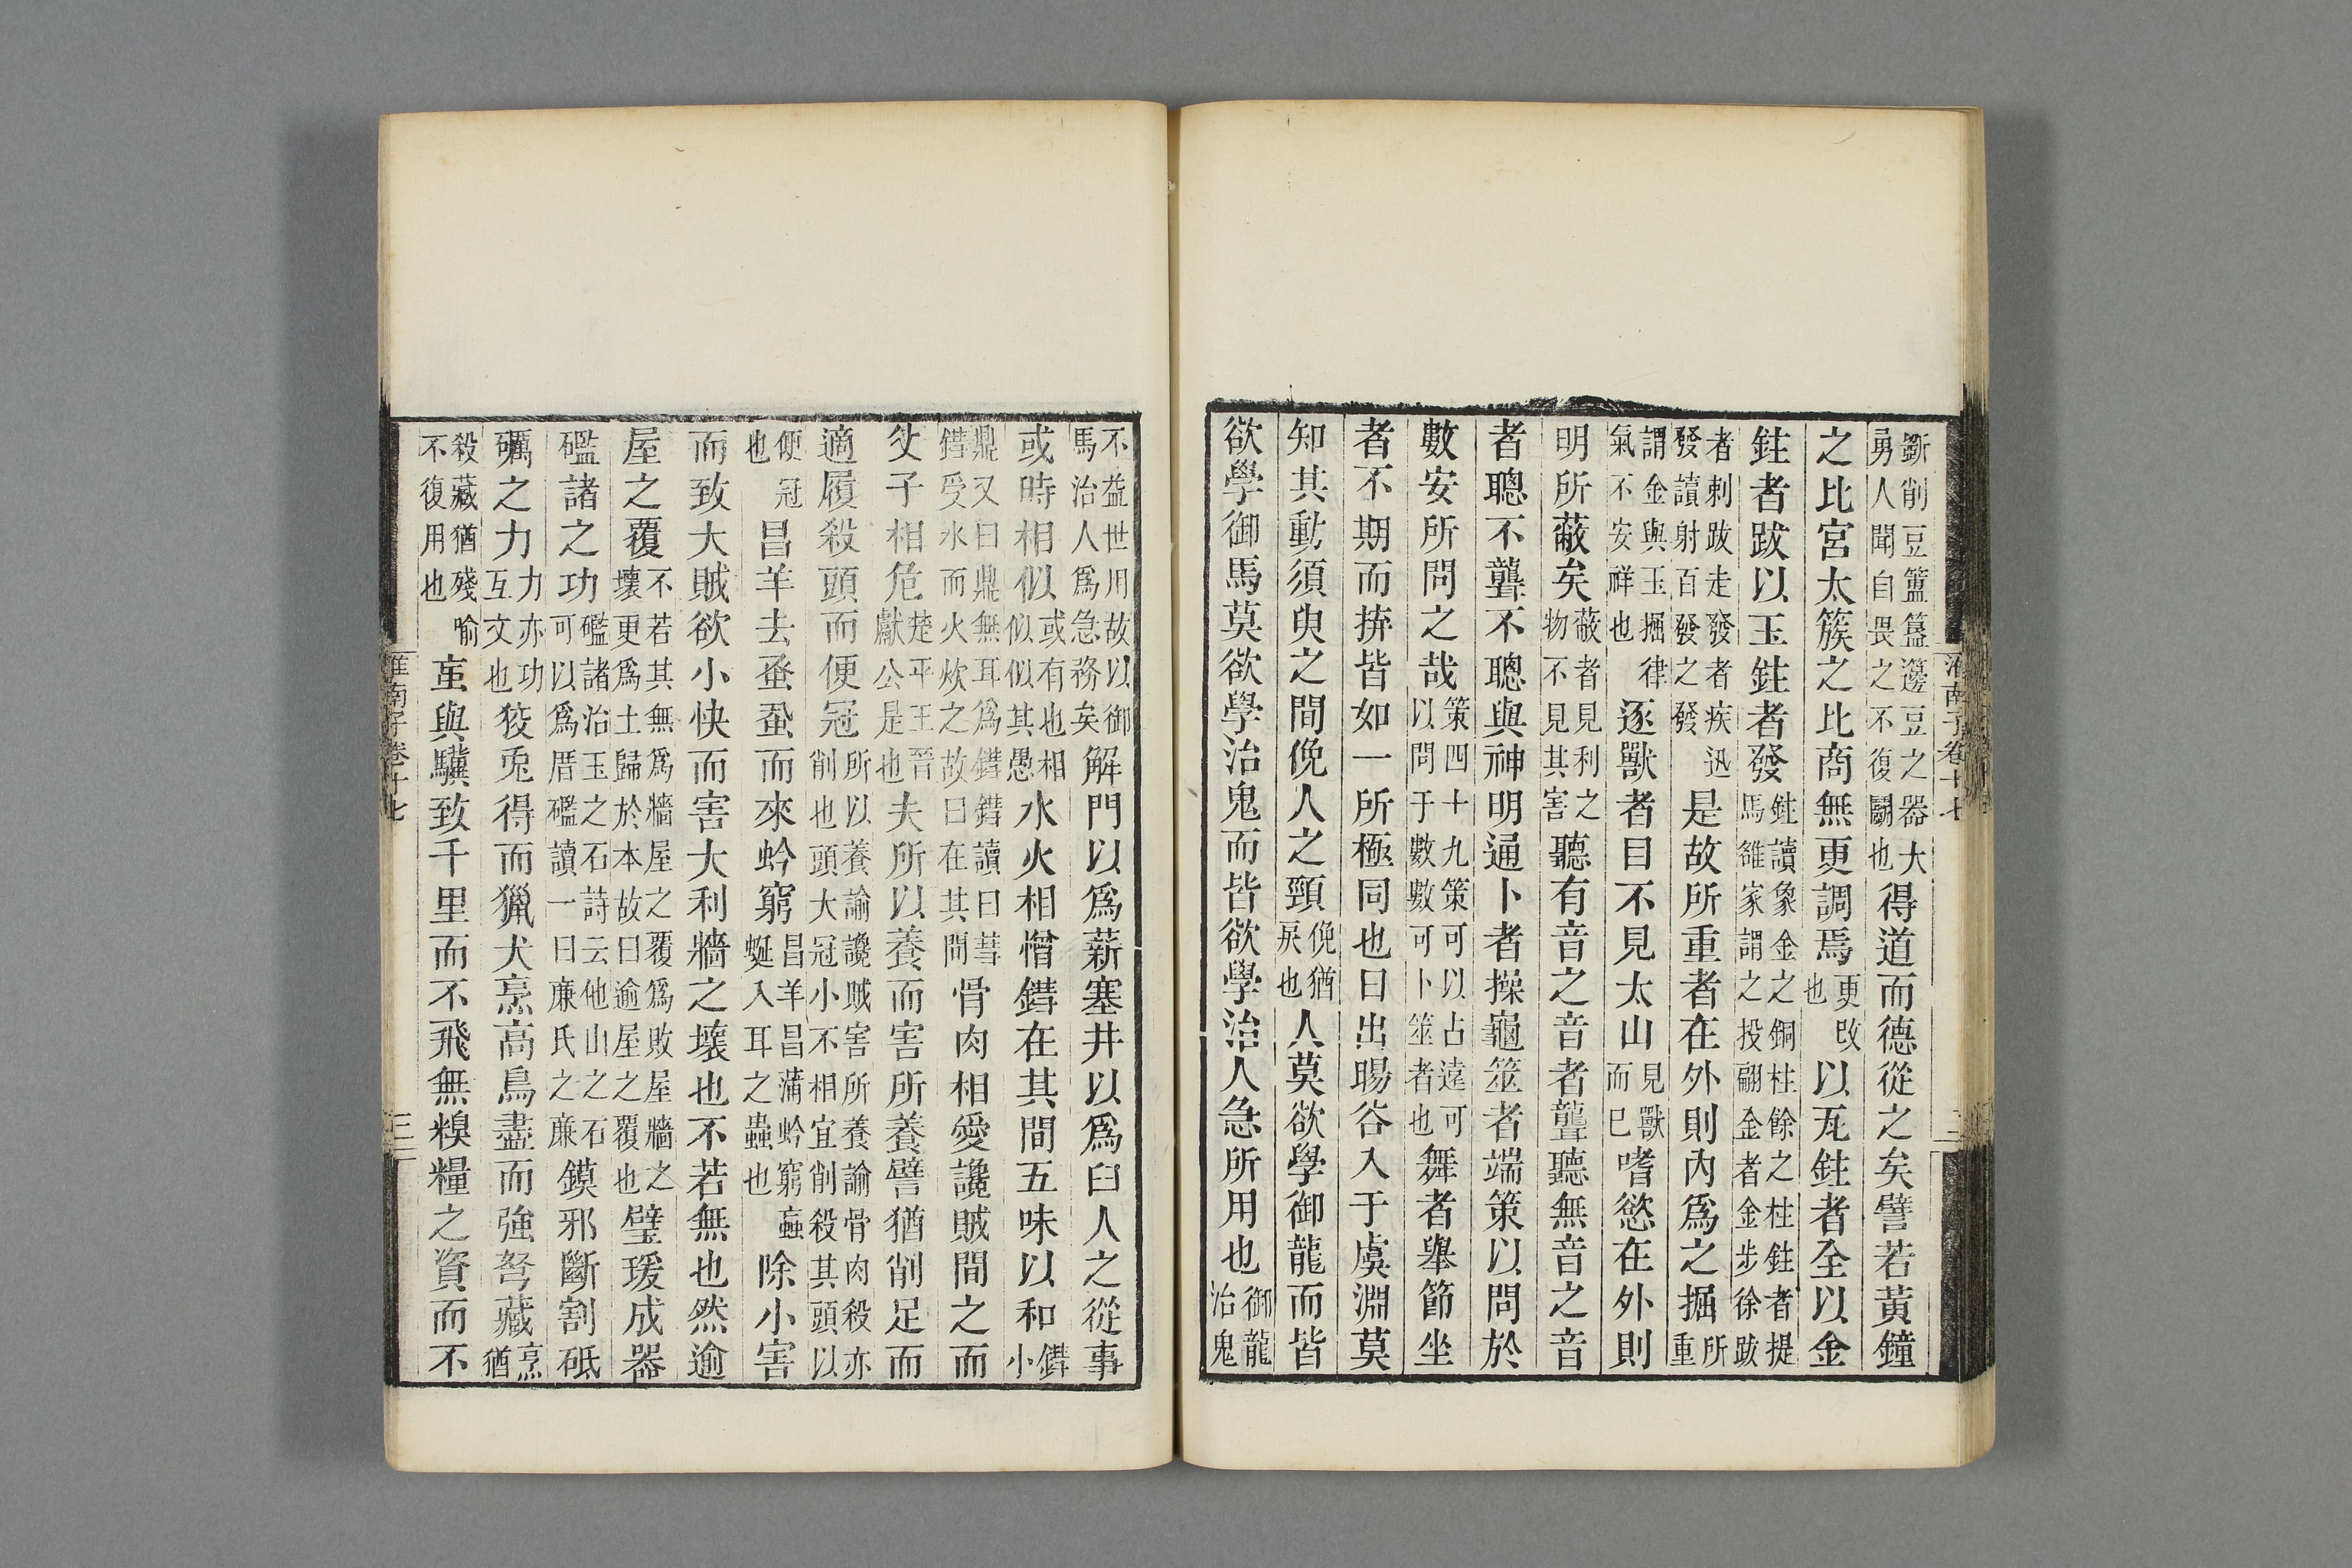 斲削豆簠簋籩豆之器大勇人聞自畏之不復鬭也得道而德從之矣譬若黃鐘
之比宮太簇之比商無更調焉更改也以瓦鉒者全以金
鉒者跋以玉鉒者發鉒讀象金之銅柱餘之柱鉒者提馬雒家謂之投翩金者金步徐跋
者刺跋走發者疾迅發讀射百發之發是故所重者在外則內爲之掘所重
謂金與玉掘律氣不安祥也逐獸者目不見太山見獸而已嗜慾在外則
明所蔽矣蔽者見利之物不見其害聽有音之音者聾聽無音之音
者聰不聾不聰與神明通卜者操龜筮者端策以問於
數安所問之哉策四十九策可以占遠可以問于數數可卜筮者也舞者舉節坐
者不期而拚皆如一所極同也日出暘谷入于虞淵莫
知其動須臾之間俛人之頸俛猶戾也人莫欲學御龍而皆
欲學御馬莫欲學治鬼而皆欲學治人急所用也御龍治鬼
淮南子卷十七
二
不益世用故以御馬治人爲急務矣解門以爲薪塞井以爲臼人之從事
或時相似或有也相似似其愚水火相憎鏏在其間五味以和鏏小
鼎又曰鼎無耳爲鏏鏏讀曰彗鏏受水而火炊之故曰在其間骨肉相愛讒賊間之而
父子相危楚平王晉獻公是也夫所以養而害所養譬猶削足而
適履殺頭而便冠所以養諭讒賊害所養諭骨肉殺亦削也頭大冠小不相宜削殺其頭以
便冠也昌羊去蚤蝨而來蚙窮昌羊昌蒲蚙窮蝱蜒入耳之蟲也除小害
而致大賊欲小快而害大利牆之壞也不若無也然逾
屋之覆不若其無爲牆屋之覆爲敗屋牆之壞更爲土歸於本故曰逾屋之覆也璧瑗成器
礛諸之功礛諸治玉之石詩云他山之石可以爲厝礛讀一曰廉氏之廉鏌邪斷割砥
礪之力力亦功互文也狡兎得而獵犬烹高鳥盡而強弩藏烹猶
殺藏猶殘喻不復用也䖟與驥致千里而不飛無糗糧之資而不
淮南子卷十七
三